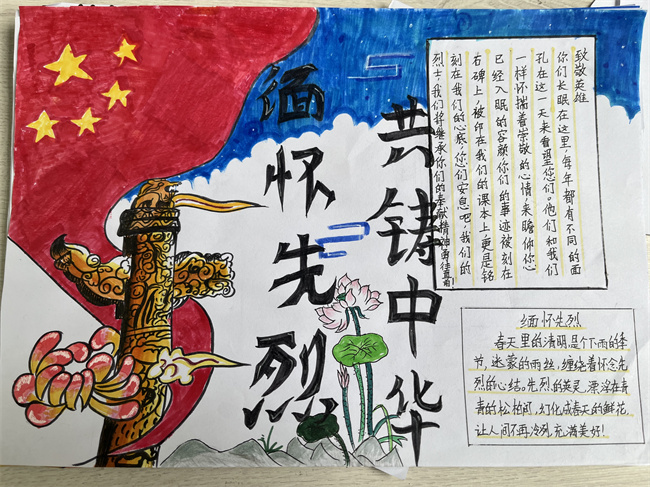 缅怀先烈
共铸中华
致敬英雄
你们长眠在这里,每年都有不同的面
孔在这一天来看望您们。他们和我们
一样怀揣着崇敬的心情,来瞻仰您
已经入眠的容颜,你们的事迹被刻在
石碑上,被印在我们的课本上,更是铭
刻在我们的心底,你们安息吧,我们的
烈士,我们将继承你们的奉献精神,往直前!
缅怀先烈
春天里的清明,是个下雨的季
节,迷蒙的雨丝,缠绕着怀念先
烈的心结。先烈的英灵,漂浮在青
青的松柏间,幻化成春天的鲜花,
让人间不再冷冽,充满美好!